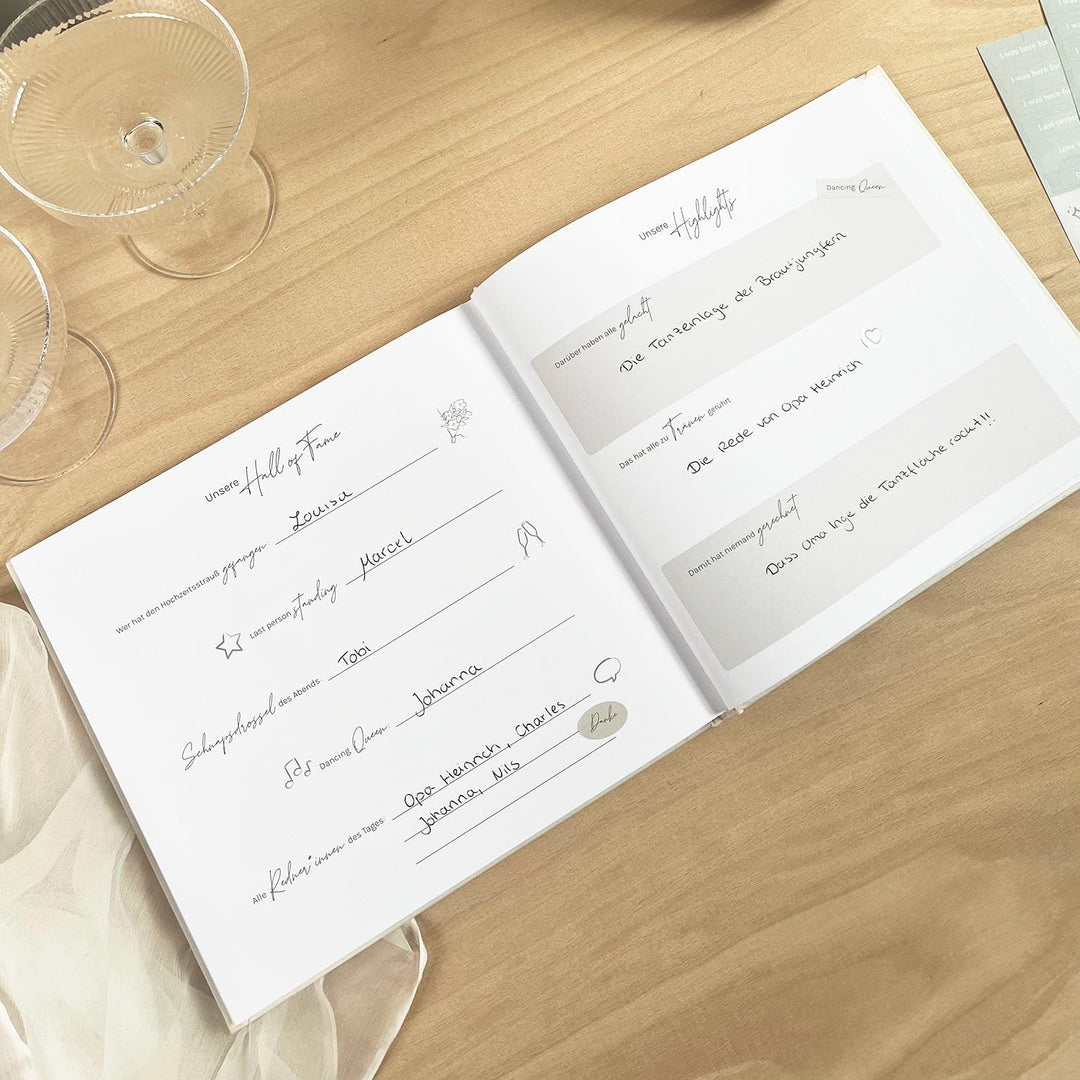 Unsere Hall of Fame
Wer hat den Hochzeitsstrauß gefangen: Louisa
Last person standing Marcel
Schnapsdrossel des Abends Tobi
Dancing Queen: Johanna
Alle Redner*innen des Tages: Opa Heinrich, Charles
Johanna, Nils
Danke
Unsere Highlights
Dancing Queen
Darüber haben alle gelacht
Die Tanzeinlage der Brautjungfern
Das hat alle zu Tränen gerührt
Die Rede von Opa Heinrich!
Damit hat niemand gerechnet
Dass Oma Inge die Tanzfläche rockt!!
I was here for
I was here for
I was here for
Last person
Love